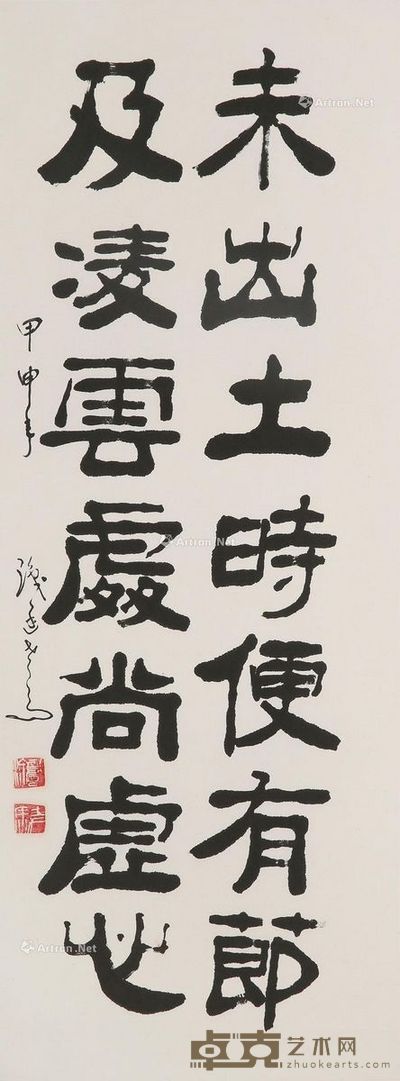 未出土時便有節
及凌雲處尚虛心
甲申年
Artron.Net
Artron.Net
Artron.Net
卓克艺术网
www.zhuokearts.com